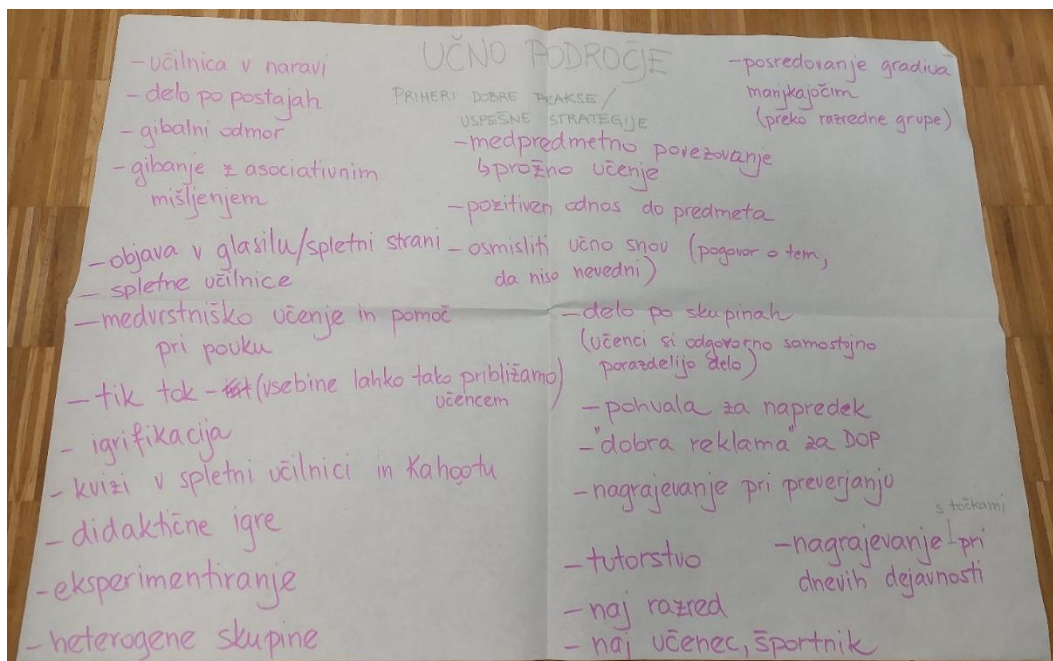 UČNO PODROČJE
PRIMERI DOBRE PRAKSE/
USPEŠNE STRATEGIJE
- učilnica v naravi
- delo po postajah
- gibalni odmor
- gibanje z asociativnim
mišljenjem
- objava v glasilu/spletni strani
- spletne učilnice
- medvrstniško učenje in pomoč
pri pouku
- tik tok - (vsebine lahko tako približamo)
učencem
- igrifikacija
- kvizi v spletni učilnici in Kahootu
- didaktične igre
- eksperimentiranje
- heterogene skupine
- medpredmetno povezovanje
↳ prožno učenje
- pozitiven odnos do predmeta
- osmisliti učno snov (pogovor o tem,
da niso nevedni)
- delo po skupinah
(učenci si odgovorno samostojno
porazdelijo delo)
- pohvala za napredek
- "dobra reklama" za DOP
- nagrajevanje pri preverjanju
- tutorstvo
- naj razred
- naj učenec, športnik
- posredovanje gradiva
manjkajočim
(preko razredne grupe)
s točkami
- nagrajevanje pri
dnevih dejavnosti